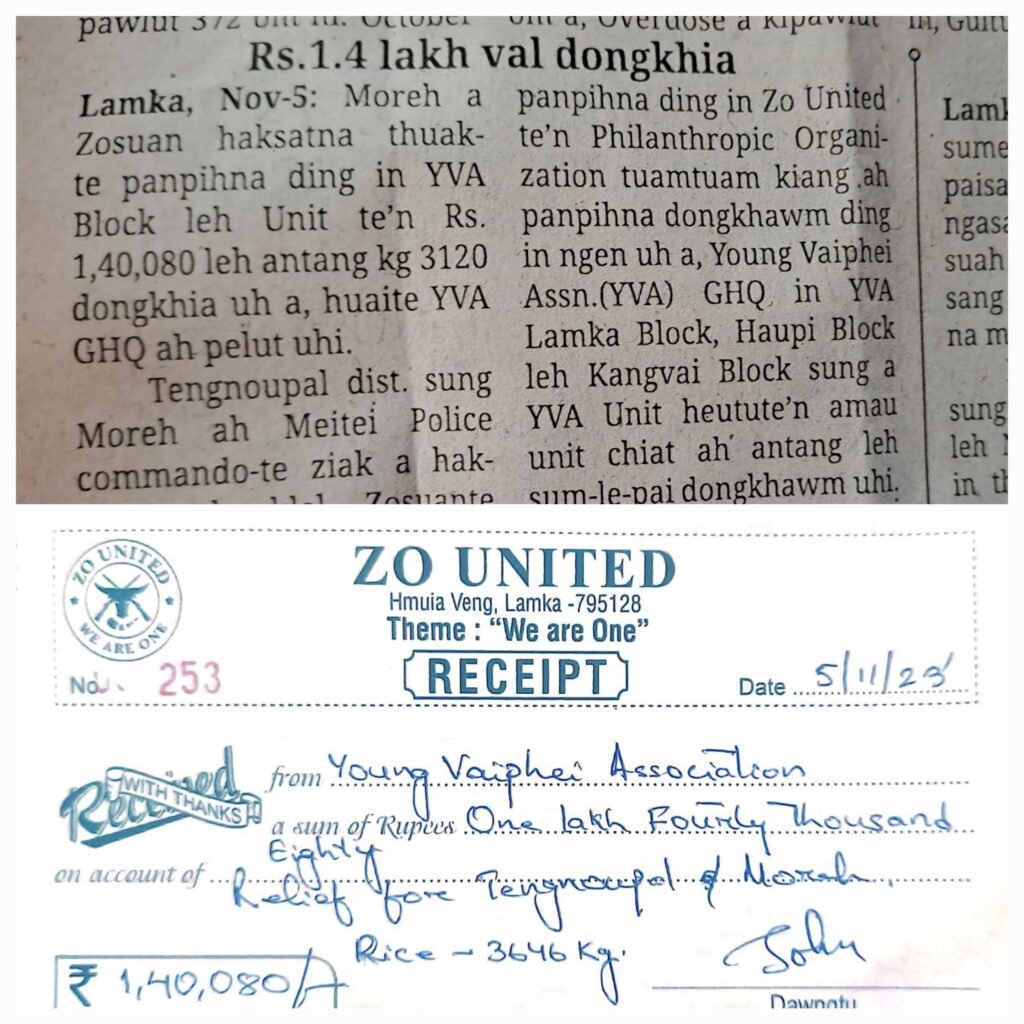 pawlut 372 um hi. October
Rs.1.4 lakh val dongkhia
Lamka, Nov-5: Moreh a
Zosuan haksatna thuak-
te panpihna ding in YVA
Block leh Unit te'n Rs.
1,40,080 leh antang kg 3120
dongkhia uh a, huaite YVA
GHQ ah pelut uhi.
Tengnoupal dist. sung
Moreh ah Meitei Police
commando-te ziak a hak-
Zosuante
a, Overdose a kipawlut
panpihna ding in Zo United
te'n Philanthropic Organi-
zation tuamtuam kiang ah
panpihna dongkhawm ding
in ngen uh a, Young Vaiphei
Assn.(YVA) GHQ in YVA
Lamka Block, Haupi Block
leh Kangvai Block sung a
YVA Unit heutute'n amau
unit chiat ah antang leh
sum-le-pai dongkhawm uhi.
sume
paisa
ngasa
suah
sang
na m
sung
leh
in th
ZO UNITED
WE ARE ONE
ZO UNITED
Hmuia Veng, Lamka -795128
Theme : "We are One"
RECEIPT
No. 253
Date 5/11/23
Received WITH THANKS from Young Vaiphei Association
a sum of Rupees One lakh Fourty Thousand
Eighty
on account of Relief fore Tengnoupal & Moreh
Rice - 3646 Kg.
John
₹ 1,40,080/-